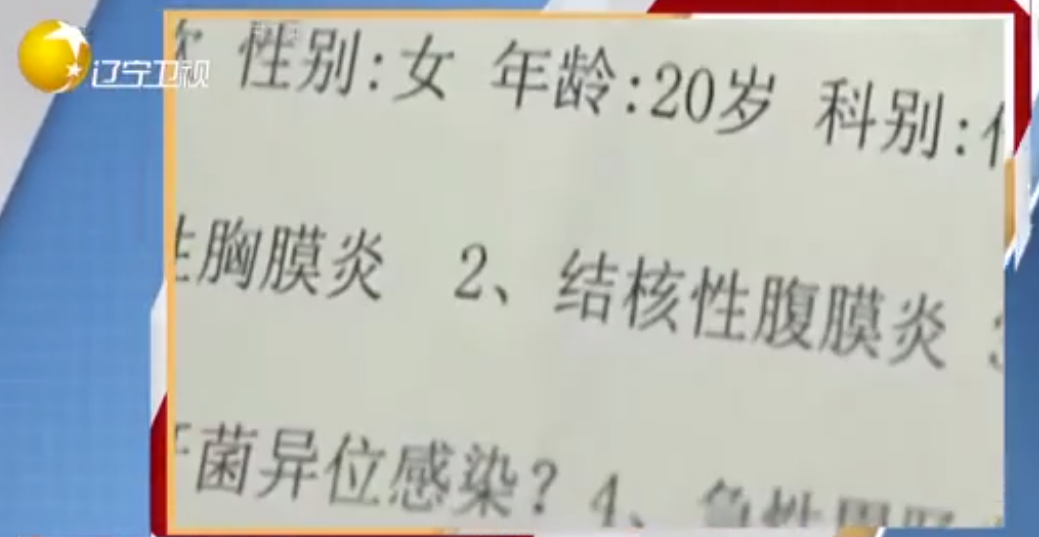 辽宁卫视
性别:女 年龄:20岁 科别:
性胸膜炎 2、结核性腹膜炎
菌异位感染? 4、急性